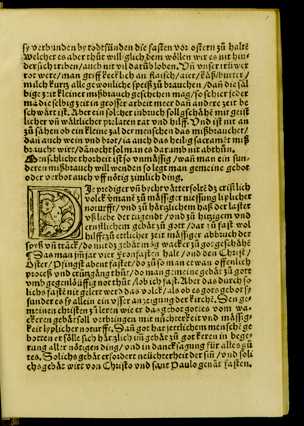 sy verbunden by todtsünden die fasten vor ostern zů haltē
welcher es aber thůt willigklich dem wöllen wir es nit hin-
dersich triben / auch nit vil darūb loben. Vn̄ unser trüwer
rot were / man griff kecklich an flaisch / aier / käß / butter /
milch kurtz alle gewonliche speiß zů bruchen / dan̄ die säl
bige zeit kleiner mißbruch geschehen mag / so sich er jeder
mā die selbig zeit in grosser arbeit meer dan̄ andere zeit be
schwärt ist. Aber in solcher inbruch soll geschähē mit geist
licher vn̄ wältlicher prelaten rat vnd hilff. Vnd ist nit an
zů sähen ob ein kleine zal der menschen das mißbruchet /
dan̄ auch wein vnd brot / ia auch das heilig sacramēt miß
brucht wirt / dānocht sol man es darumb nit abthůn.
Menschliche thorheit ist so vnmässig / wan̄ man ein sun-
deren mißbruch will wenden so legt man gemeine gebot
oder verbot auch vff nötig zimlich ding.
DIe prediger vn̄ bychtvätter soltē dz cristlich
volck vmanē zů mässiger niessung lyplicher
noturfft / vnd zů härtzlichem haß der laster
üblicher der tugendt / vnd zů hitzigem vnd
ernstlichem gebät zů gott / dar zů fast wol
hilffet zitlicher zeit mässiger abbruch der
speyß vn̄ tranck / do mit dz gebät mög wacker zů got geschähē
Das man im jar vier fronfasten halt / vnd den Christ /
Oster / Pfingst abent fastet / do zů so man etwan offenlich
proceß vnd crützgäng thůt / do man gemeine gebät zů gott
vmb gegenlöuffig not thůt / lob ich fast. Aber das durch so
lichs fasten nit gelert werd das volck / als ob es gots gebot sy
sunder es sy allein ein vffer anzeigung der kirchē. Den ge-
meinen christen zů leren wie er das gebot gottes vom wa-
ckeren gebät soll verbringen mit nüchterkeit vnd mässig-
keit lyplicher noturfft. Dan̄ got hat jettlichem menschē ge
botten er sölle sich härtzlich im gebät zů got keren in bege-
rung aller nötigen ding / vnd in dancksagung für alles gů
tes. Solichs gebät erfordert nüchterheit der sin̄ / vnd soli
chs gebät wirt von Christo vnd sant Paulo genāt fasten.